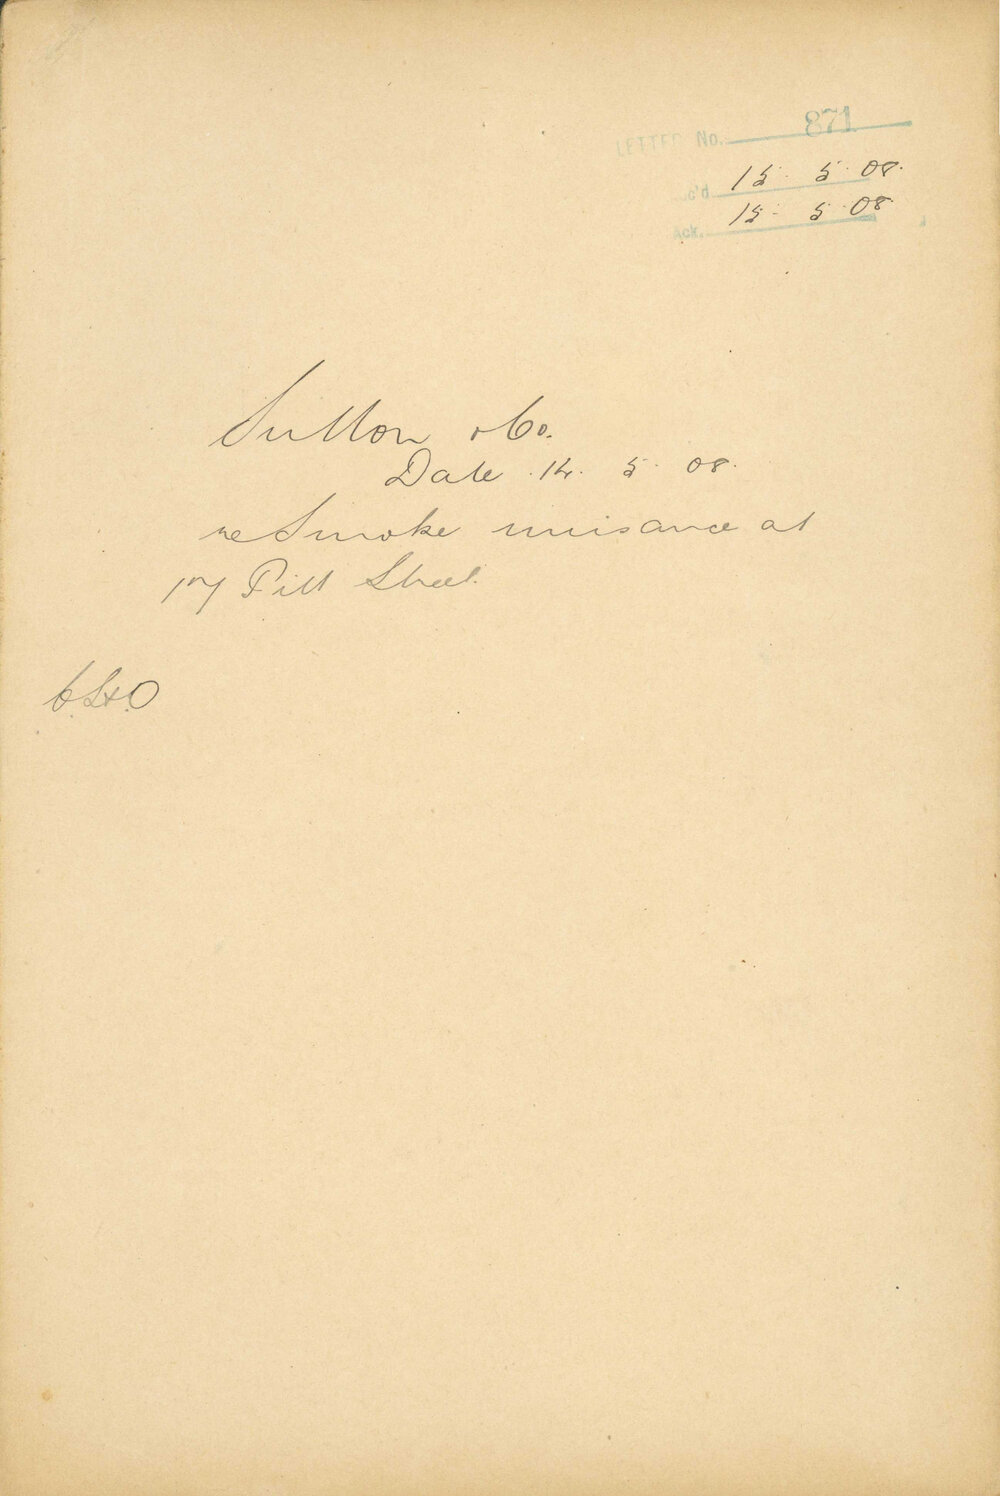 LETTER No. 871
c'd 15. 5. 08.
Ack. 15. 5. 08
Sutton & Co.
Date 14. 5. 08.
re Smoke nuisance at
Pitt Street